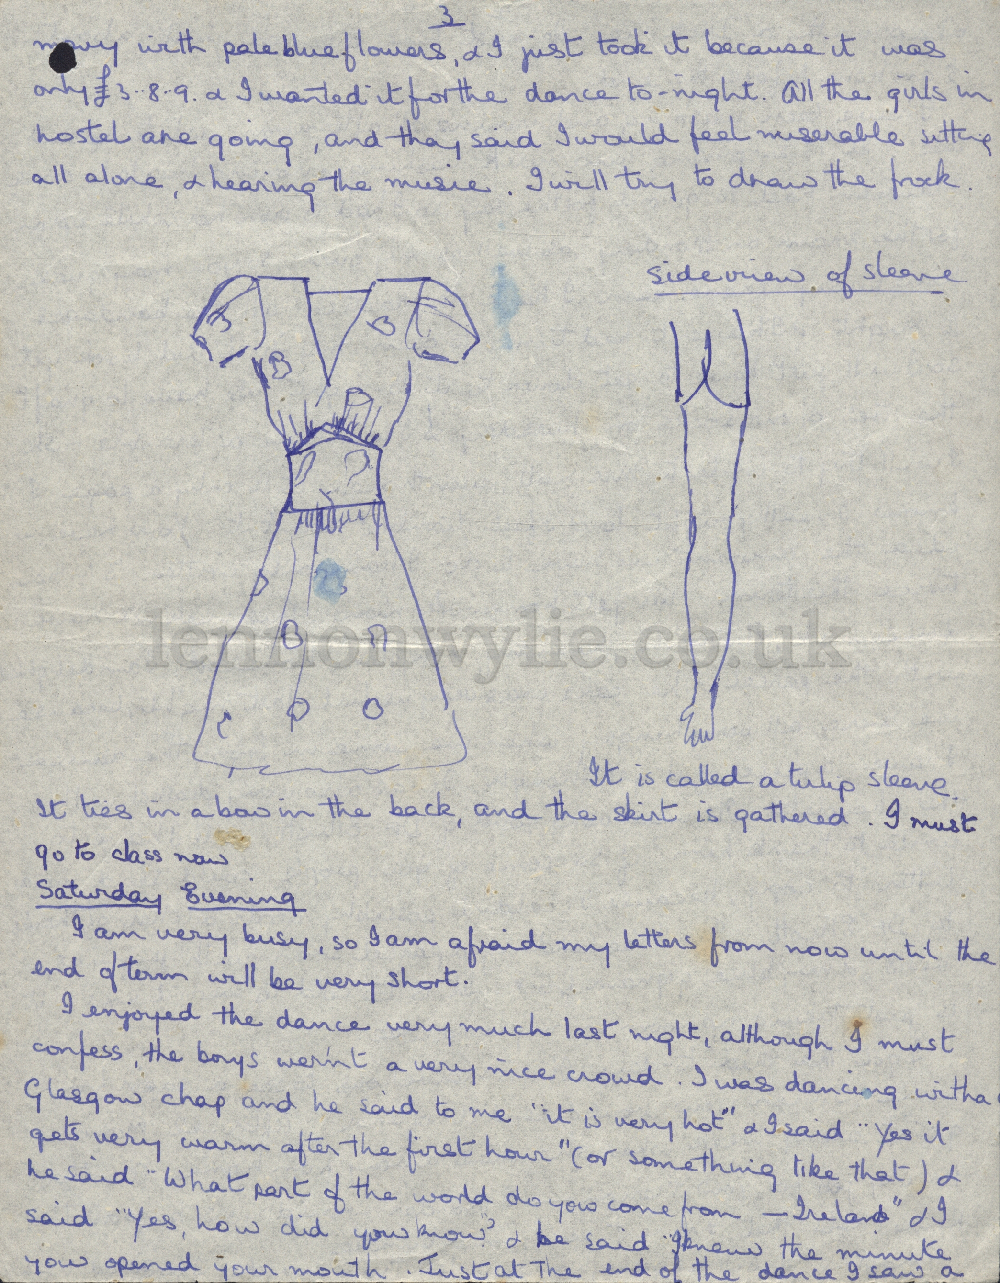 3
navy with pale blue flowers, & I just took it because it was
only £3-8-9. & I wanted it for the dance to-night. All the girls in
hostel are going, and they said I would feel miserable sitting
all alone, & hearing the music. I will try to draw the frock.
side view of sleeve
lennonwylie.co.uk
It is called a tulip sleeve.
It ties in a bow in the back, and the skirt is gathered. I must
go to class now
Saturday Evening
I am very busy, so I am afraid my letters from now until the
end of term will be very short.
I enjoyed the dance very much last night, although I must
confess, the boys wern't a very nice crowd. I was dancing with a
Glasgow chap and he said to me "it is very hot" & I said "Yes it
gets very warm after the first hour" (or something like that) &
he said "What part of the world do you come from — Ireland" & I
said "Yes, how did you know" & he said "I knew the minute
you opened your mouth. Just at the end of the dance I saw a